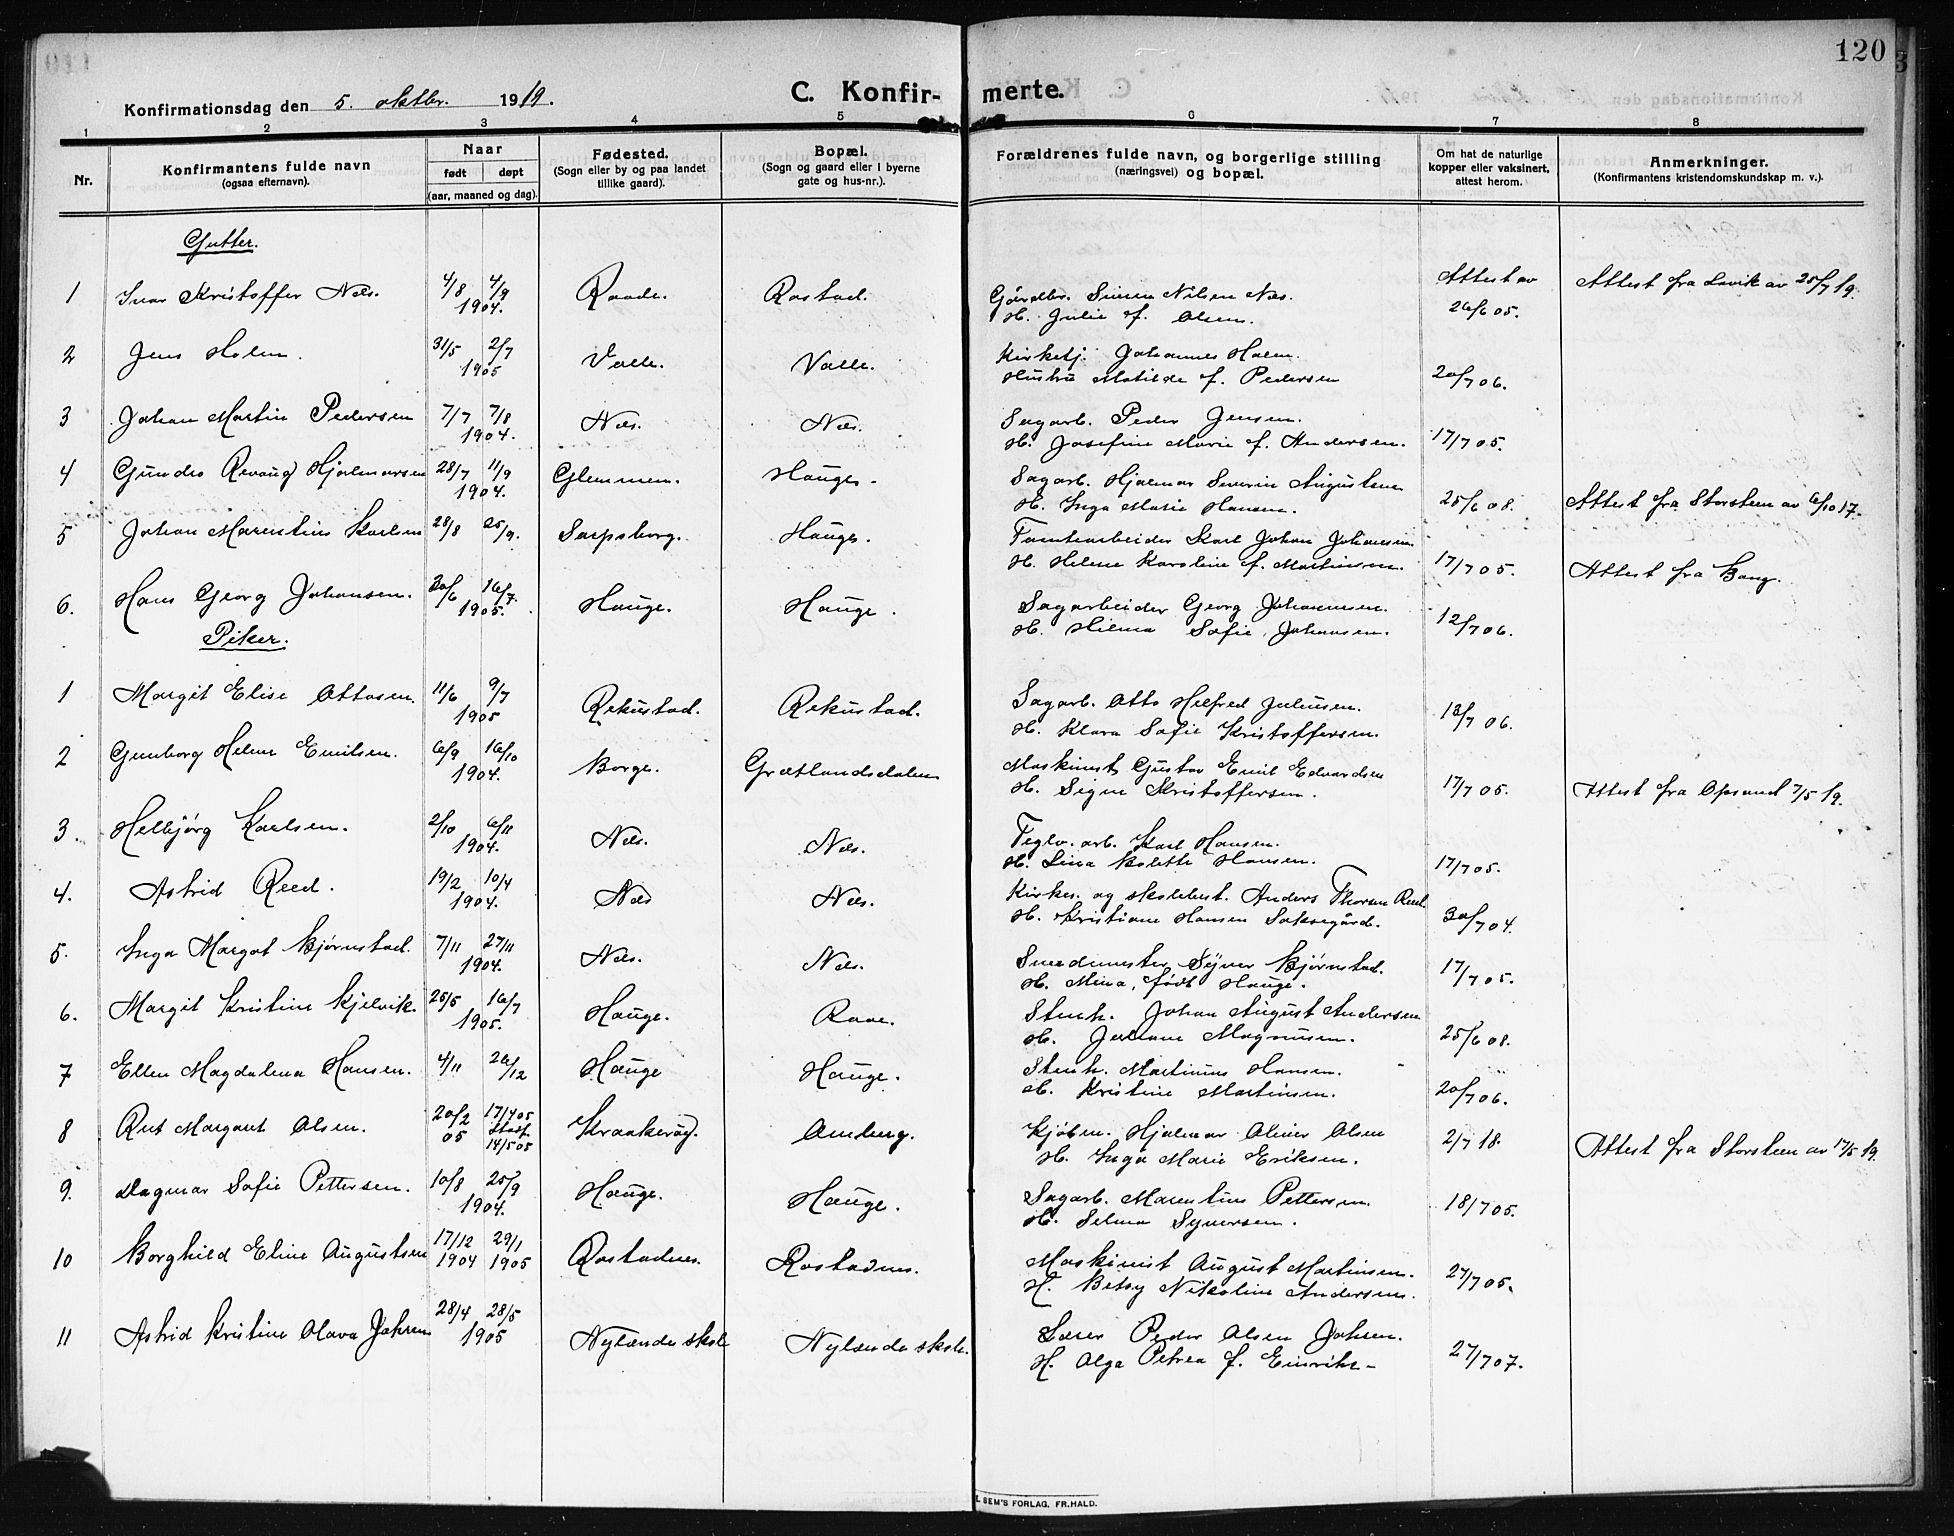 120
Konfirmationsdag den 5. oktbr. 1919.
C. Konfirmerte.
1 2 3 4 5 6 7 8
Nr.
Konfirmantens fulde navn
(ogsaa efternavn).
Naar
født døpt
(aar, maaned og dag).
Fødested.
(Sogn eller by og paa landet
tillike gaard).
Bopæl.
(Sogn og gaard eller i byerne
gate og hus-nr.).
Forældrenes fulde navn, og borgerlige stilling
(næringsvei) og bopæl.
Om hat de naturlige
kopper eller vaksinert,
attest herom.
Anmerkninger.
(Konfirmantens kristendomskundskap m. v.).
Gutter.
1 Ivar Kristoffer Næs. 4/8 4/9 1904. Raade. Rostad. Gårdbr. Simen Nilsen Næs. Attest av Attest fra Lervik av 25/7 19.
H. Julie f. Olsen. 26/6 05.
2 Jens Holm. 31/5 2/7 1905 Valle. Valle. Kirketj. Johannes Holm.
Hustru Matilde f. Pedersen 20/7 06.
3 Johan Martin Pedersen 7/7 7/8 1904. Næs. Næs. Sagarb. Peder Jensen.
H. Josefine Marie f. Andersen. 17/7 05.
4 Hjalmarsen 28/7 11/9 1904. Glemmen. Hauge. Sagarb. Hjalmar Severin Augustsen
H. Inga Marie Hansen. 25/6 08. Attest fra Storsteen av 6/10 17.
5 Johan Marentius Karlsen 28/8 25/9. Sarpsborg. Hauge. Tomtearbeider Karl Johan Johansen.
H. Helene Karoline f. Martinsen. 17/7 05. Attest fra Bang.
6. Hans Georg Johansen. 30/6 16/7 1905. Hauge. Hauge. Sagarbeider Georg Johannesen.
H. Hilma Sofie Johansen. 12/7 06.
Piker.
1 Margit Elise Ottosen. 11/6 9/7 1905 Rekustad. Rekustad. Sagarb. Otto Helfred Juliusen.
H. Klara Sofie Kristoffersen. 18/7 06.
2 Gunborg Helene Emilsen. 6/9 16/10 1904. Borge. Grætlandsdalen Maskinist Gustav Emil Edvardsen
H. Signe Kristoffersen. 17/7 05. Attest fra Opsund 7/5 19.
3. Helbjørg Karlsen. 2/10 6/11 1904. Næs. Næs. Teglv. arb. Karl Hansen.
H. Lina Kolette Hansen. 17/7 05.
4. Astrid Reed. 19/2 10/4 1904. Næs Næs. Kirkes. og skolebest. Anders Thorsen Reed.
H. Kristiane Hansen Saksegård. 30/7 04.
5. Inga Margot Bjørnstad. 7/11 27/11 1904. Næs. Næs. Smedmester Syver Bjørnstad.
H. Mina, født Hauge. 17/7 05.
6. Margit Kristine Kjelvik. 25/5 16/7 1905. Hauge. Raae. Stenh. Johan August Andersen
H. Juliane Magnussen. 25/6 08.
7 Ellen Magdalena Hansen. 4/11 26/12 Hauge Hauge. Stenh. Martinius Hansen.
H. Kristine Martinsen. 20/7 06.
8 Rut Margaret Olsen. 20/2 05 17/4 05 stadf. 14/5 05 Kraakerøy. Omberg. Kjøbm. Hjalmar Oliver Olsen
H. Inga Marie Eriksen. 2/7 18. Attest fra Storsteen av 17/5 19.
9. Dagmar Sofie Pettersen. 10/8 25/9 1904. Hauge. Hauge. Sagarb. Marentius Pettersen.
H. Selma Syversen. 18/7 05.
10 Borghild Eline Augustsen 17/12 1904 29/1 1905 Rostadnes. Rostadnes. Maskinist August Martinsen.
H. Betsy Nikoline Andersen. 27/7 05.
11 Astrid Kristine Olava Jahren 28/4 28/5 1905 Nylænde skole Nylænde skole. Lærer Peder Olsen Jahren.
H. Olga Petrea f. Emriks- 27/7 07.
E. SEM'S FORLAG, FR.HALD.